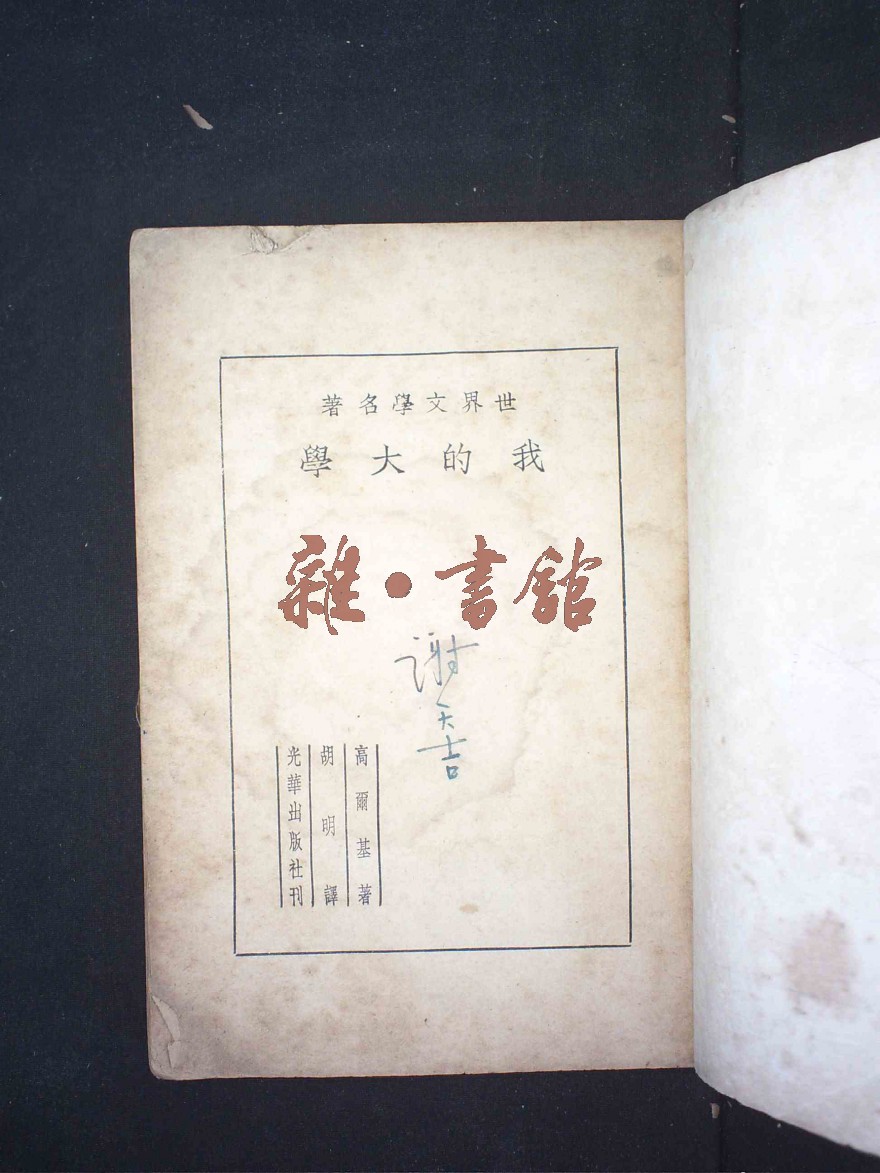 世界文學名著
我的大學
雜·書館
謝天吉
高爾基著
胡明譯
光華出版社刊